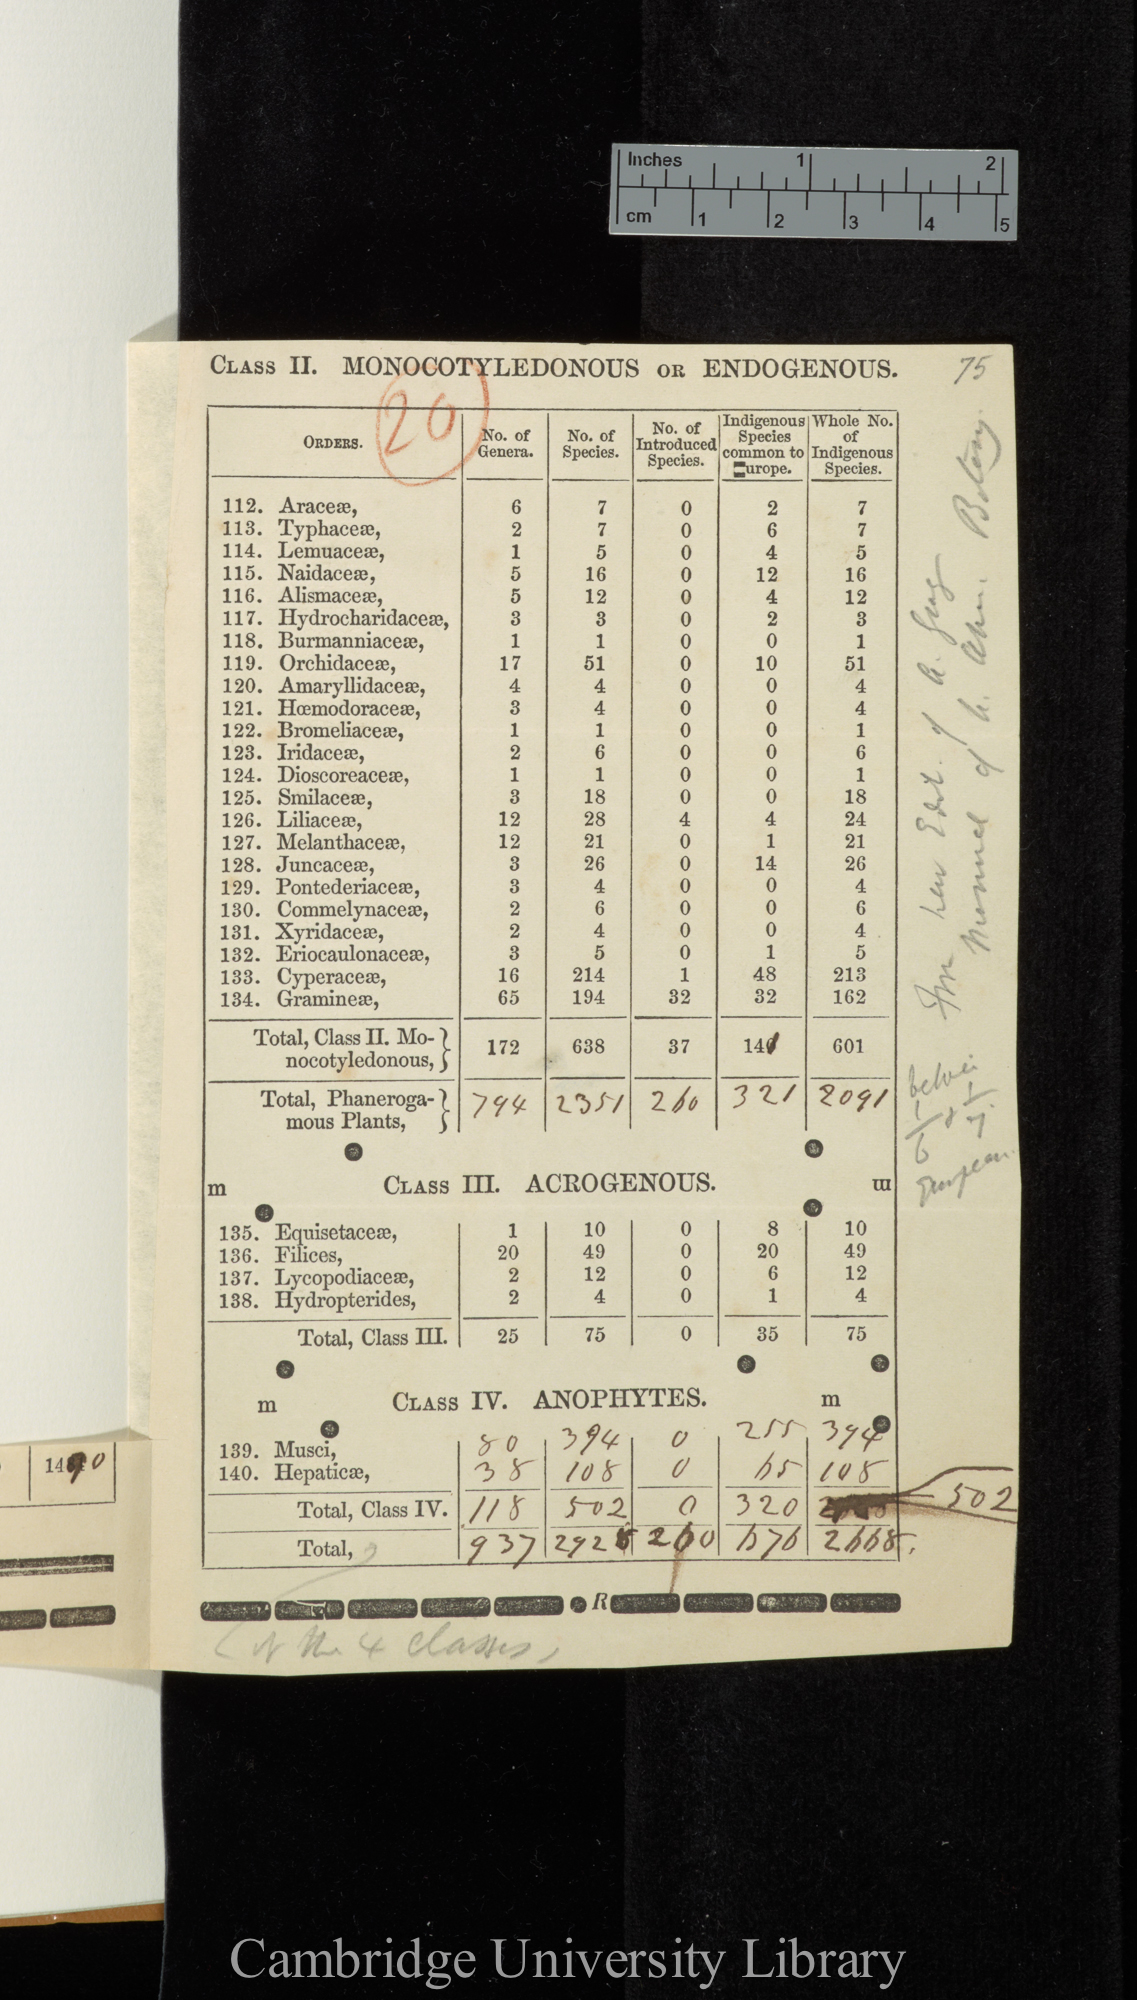 Inches 1 2
cm 1 2 3 4 5
CLASS II. MONOCOTYLEDONOUS OR ENDOGENOUS.
75
20
ORDERS. No. of Genera. No. of Species. No. of Introduced Species. Indigenous Species common to Europe. Whole No. of Indigenous Species.
112. Araceæ, 6 7 0 2 7
113. Typhaceæ, 2 7 0 6 7
114. Lemuaceæ, 1 5 0 4 5
115. Naidaceæ, 5 16 0 12 16
116. Alismaceæ, 5 12 0 4 12
117. Hydrocharidaceæ, 3 3 0 2 3
118. Burmanniaceæ, 1 1 0 0 1
119. Orchidaceæ, 17 51 0 10 51
120. Amaryllidaceæ, 4 4 0 0 4
121. Hœmodoraceæ, 3 4 0 0 4
122. Bromeliaceæ, 1 1 0 0 1
123. Iridaceæ, 2 6 0 0 6
124. Dioscoreaceæ, 1 1 0 0 1
125. Smilaceæ, 3 18 0 0 18
126. Liliaceæ, 12 28 4 4 24
127. Melanthaceæ, 12 21 0 1 21
128. Juncaceæ, 3 26 0 14 26
129. Pontederiaceæ, 3 4 0 0 4
130. Commelynaceæ, 2 6 0 0 6
131. Xyridaceæ, 2 4 0 0 4
132. Eriocaulonaceæ, 3 5 0 1 5
133. Cyperaceæ, 16 214 1 48 213
134. Gramineæ, 65 194 32 32 162
Total, Class II. Mo-
nocotyledonous, 172 638 37 141 601
Total, Phaneroga-
mous Plants, 794 2351 260 321 2091
m CLASS III. ACROGENOUS. m
135. Equisetaceæ, 1 10 0 8 10
136. Filices, 20 49 0 20 49
137. Lycopodiaceæ, 2 12 0 6 12
138. Hydropterides, 2 4 0 1 4
Total, Class III. 25 75 0 35 75
m CLASS IV. ANOPHYTES. m
139. Musci, 80 394 0 255 394
140. Hepaticæ, 38 108 0 65 108
Total, Class IV. 118 502 0 320 502
Total, 937 2928 260 676 2668.
R
of the 4 classes,
from new Edit. of A. Gray
Manual of N. Am. Botany.
betwe.
1/6 & 1/7.
European.
Cambridge University Library